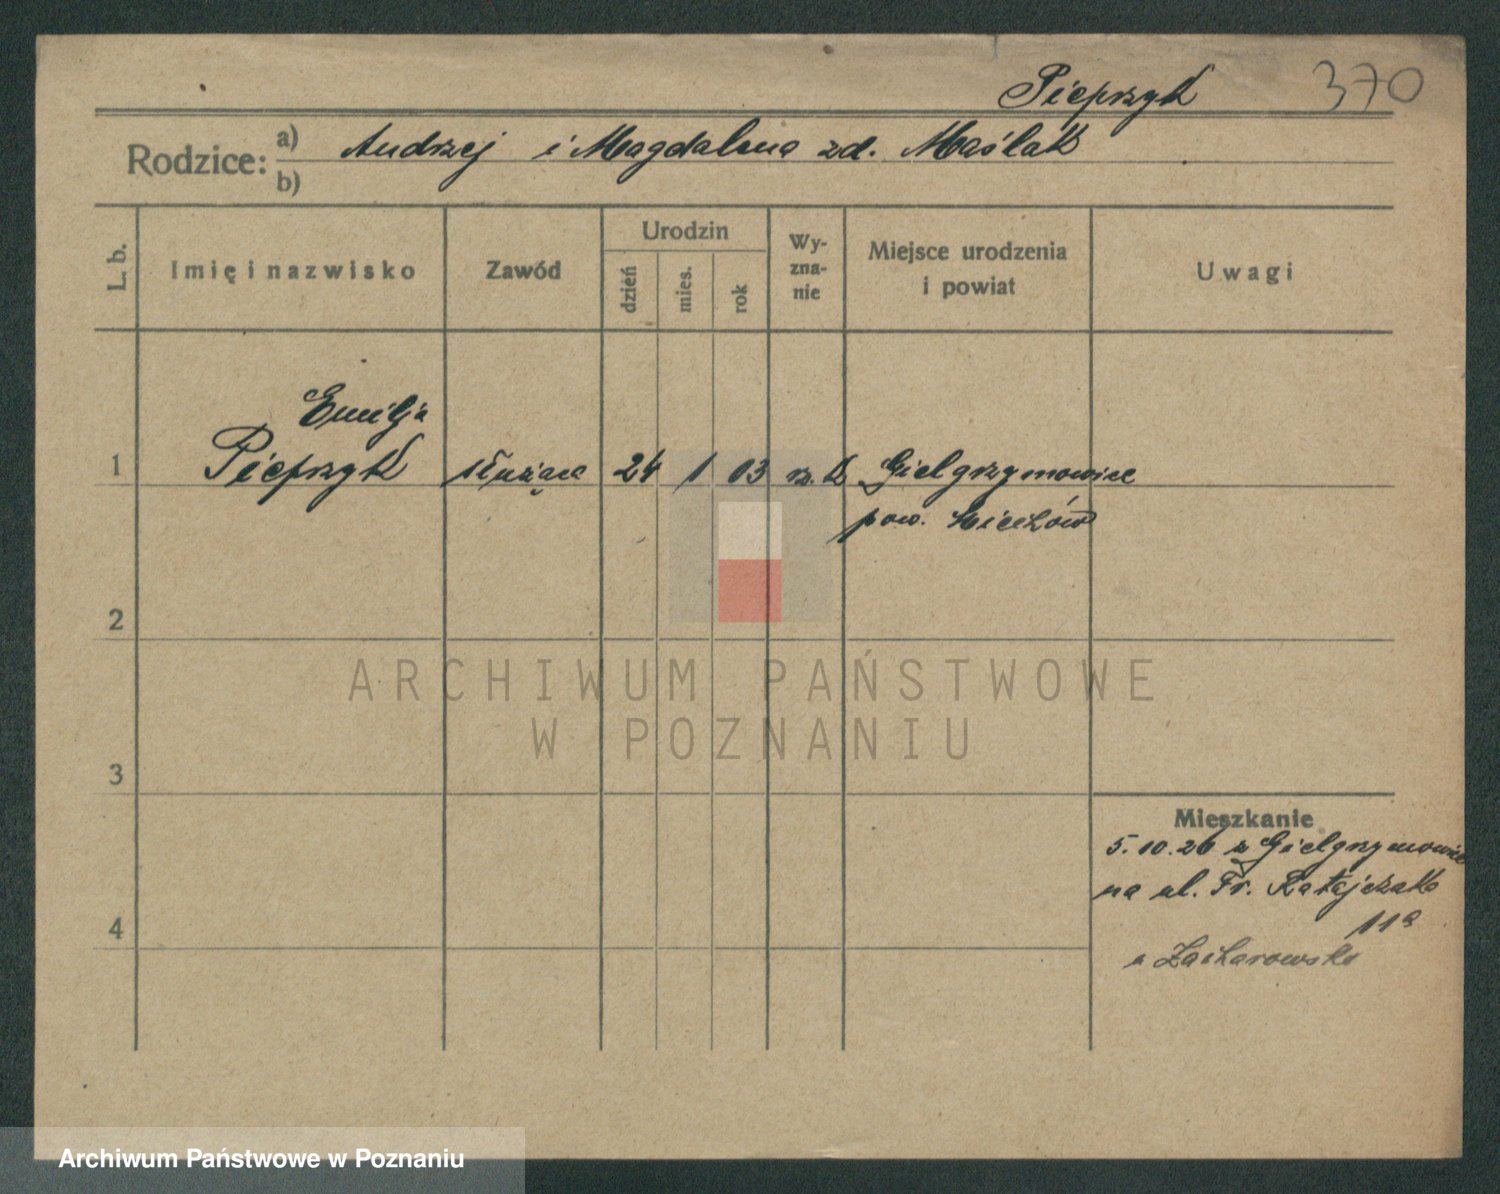 Pieprzyk 370
Rodzice: a) Andrzej i Magdalena zd. Maślak
b)
L. b.
Imię i nazwisko
Zawód
Urodzin
dzień
mies.
rok
Wy-
zna-
nie
Miejsce urodzenia
i powiat
Uwagi
Emilja
1 Pieprzyk służąca 24 1 03 rz. k Gielgrzymowice
pow. Miechów
2
ARCHIWUM PAŃSTWOWE
W POZNANIU
3
Mieszkanie
5.10.26 z Gielgrzymowic
na ul. Fr. Ratajczaka
4
11a
u Zacharowski
Archiwum Państwowe w Poznaniu